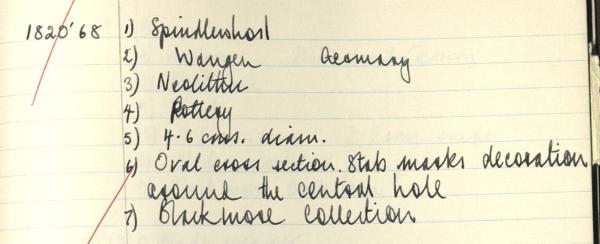 1820'68 1) Spindlewhorl
2) Wangen Germany
3) Neolithic
4) Pottery
5) 4.6 cms. diam.
6) Oval cross section. Stab marks decoration
around the central hole
7) Blackmore Collection